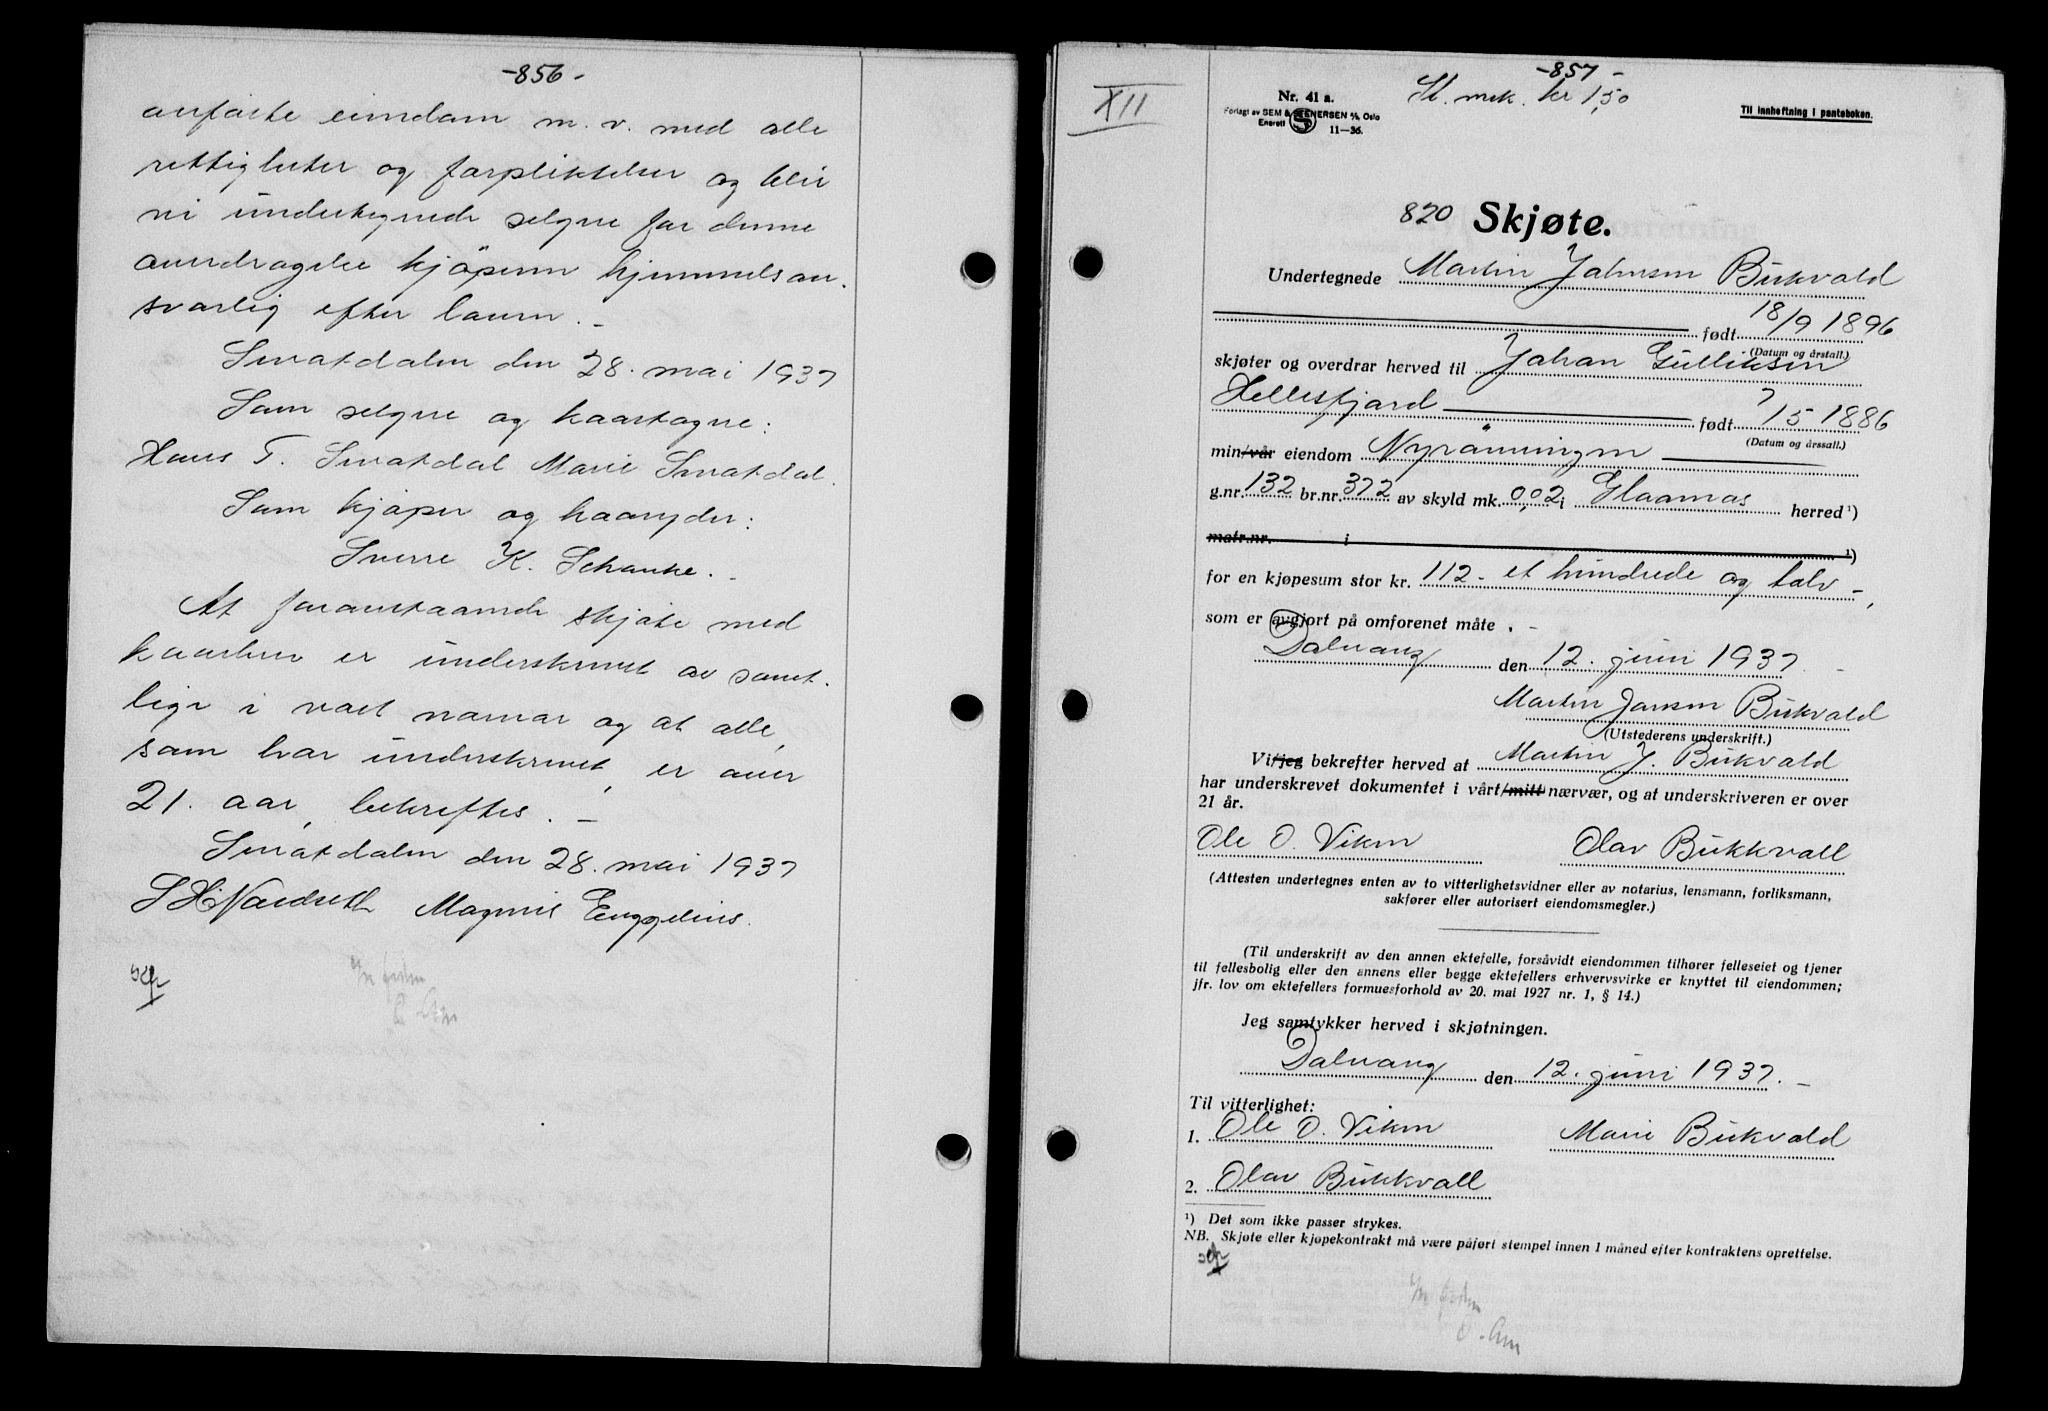 -856-
anførte eiendom m. v. med alle
rettigheter og forpliktelser og blir
vi undertegnede selgere for denne
overdragelse kjøperen hjemmelsan-
svarlig efter loven. -
Smatdalen den 28. mai 1937
Som selgere og kaartagere:
Hans T. Smatdal Marie Smatdal.
Som kjøper og kaaryder:
Sverre K. Schanke. -
At foranstaaende skjøte med
kaarbrev er underskrevet av samt-
lige i vart nærvær og at alle,
som har underskrevet, er over
21. aar, bekreftes. -
Smatdalen den 28. mai 1937
Magnus Enggelins.
-857-
XII
St. mrk. kr 1,50
Nr. 41 a.
Forlagt av SEM & STENERSEN A/S, Oslo
Enerett 11-36.
Til innheftning i panteboken.
820 Skjøte.
Undertegnede Martin Johnsen Bukvald
født 18/9 1896
(Datum og årstall.)
skjøter og overdrar herved til Johan Gulliksen
Hellesfjord født 7/5 1886
(Datum og årssall.)
min/vår eiendom Nyrønningen
g.nr. 132 br.nr. 372 av skyld mk. 0,02 i Glaamos herred ¹)
matr.nr. i ¹)
for en kjøpesum stor kr. 112 - et hundrede og tolv -,
som er avgjort på omforenet måte. -
Dalvang den 12. juni 1937. -
Martin Jonsen Bukvald
(Utstederens underskrift.)
Vi/jeg bekrefter herved at Martin J. Bukvald
har underskrevet dokumentet i vårt/mitt nærvær, og at underskriveren er over
21 år.
Ole O. Viken Olav Bukkvall
(Attesten undertegnes enten av to vitterlighetsvidner eller av notarius, lensmann, forliksmann,
sakfører eller autorisert eiendomsmegler.)
(Til underskrift av den annen ektefelle, forsåvidt eiendommen tilhører felleseiet og tjener
til fellesbolig eller den annens eller begge ektefellers erhvervsvirke er knyttet til eiendommen;
jfr. lov om ektefellers formuesforhold av 20. mai 1927 nr. 1, § 14.)
Jeg samtykker herved i skjøtningen.
Dalvang den 12. juni 1937. -
Til vitterlighet:
1. Ole O. Viken Marie Bukvald
2. Olav Bukkvall
¹) Det som ikke passer strykes.
NB. Skjøte eller kjøpekontrakt må være påført stempel innen 1 måned efter kontraktens oprettelse.